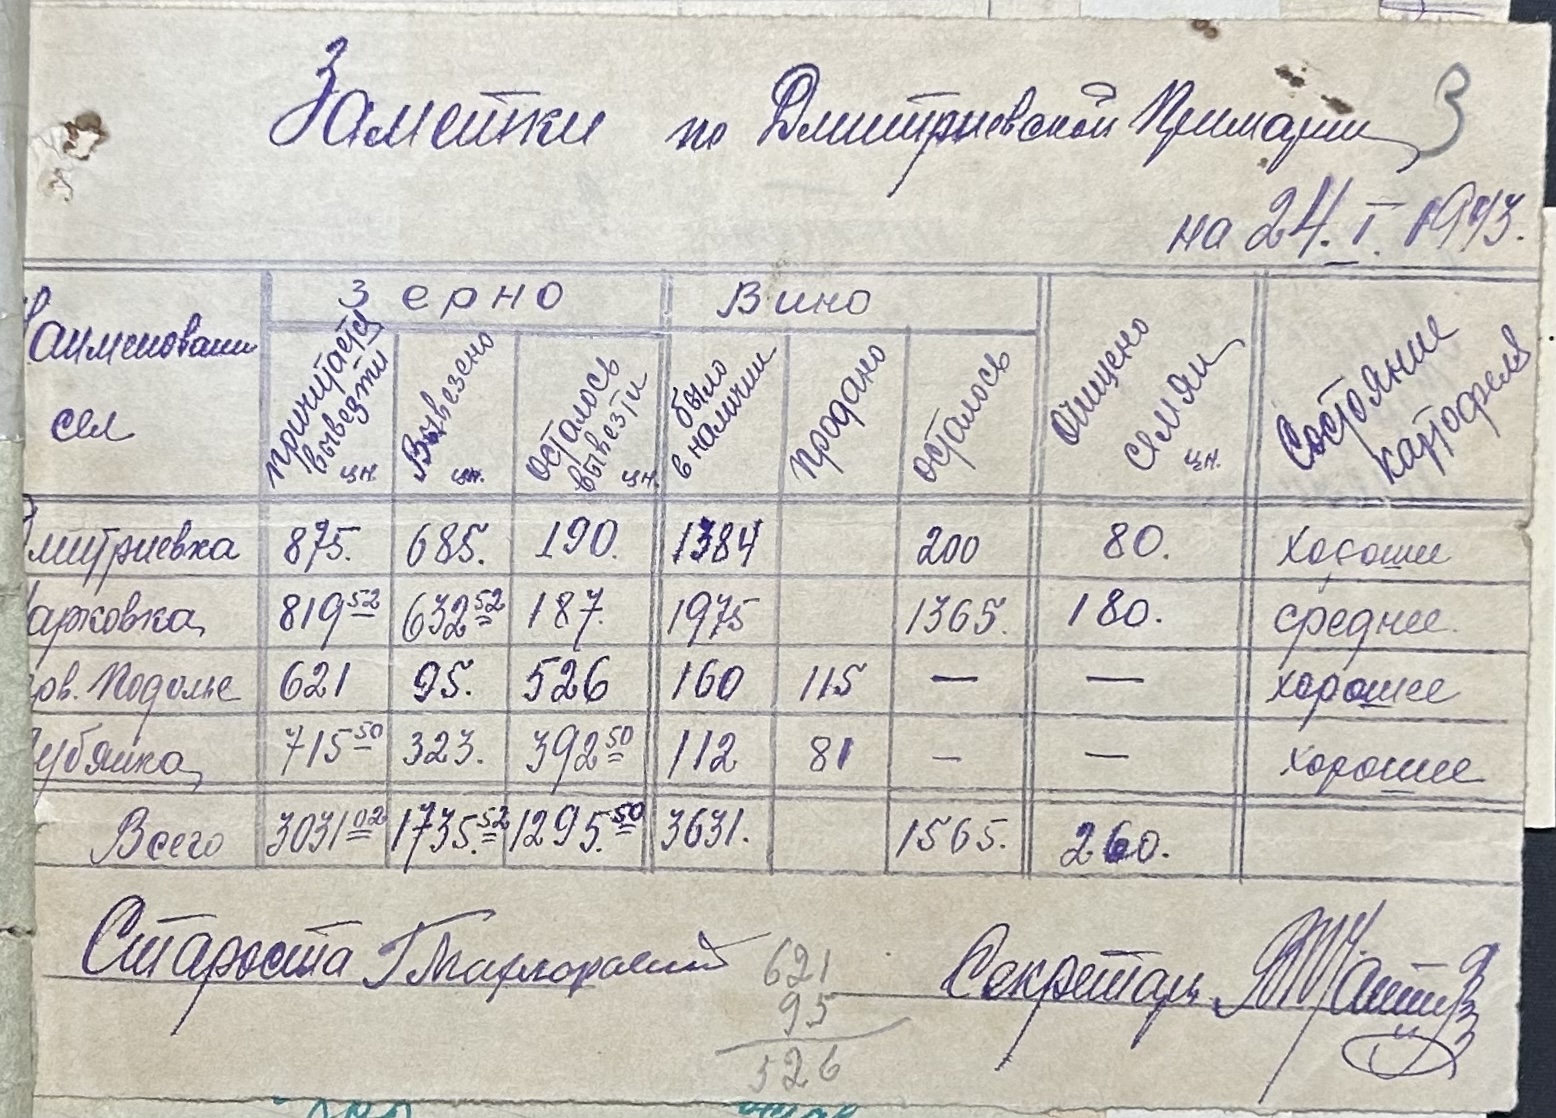 Заметки по Дмитриевской Примарии 3
на 24. I. 1943.
Наименовании сел
Зерно Вино
причитается вывезти цн. Вывезено цн. осталось вывезти цн. было в наличии продано осталось Очищено семян цн. Состояние картофеля
Дмитриевка 875. 685. 190. 1384 200 80. хороши
Марковка 819 52 632 52 187. 1975 1365. 180. среднее.
ов. Подолье 621 95. 526 160 115 — — хорошее
убянка 715 50 323. 392 50 112 81 — — хорошие
Всего 3031 02 1735. 52 1295. 50 3631. 1565. 260.
Староста Секретарь
621
95
526